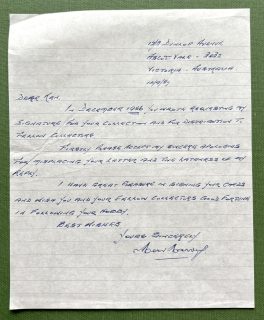 Ascot Vale - 3032
Victoria - Australia
Dear Ray,
In December 1986 you wrote requesting my
signature for your collection and for distribution to
fellow collectors.
Firstly please accept my sincere apologies
for misplacing your letter and the lateness of my
reply.
I have great pleasure in signing your cards
and wish you and your fellow collectors good fortune
in following your hobby.
Best wishes
Yours sincerely